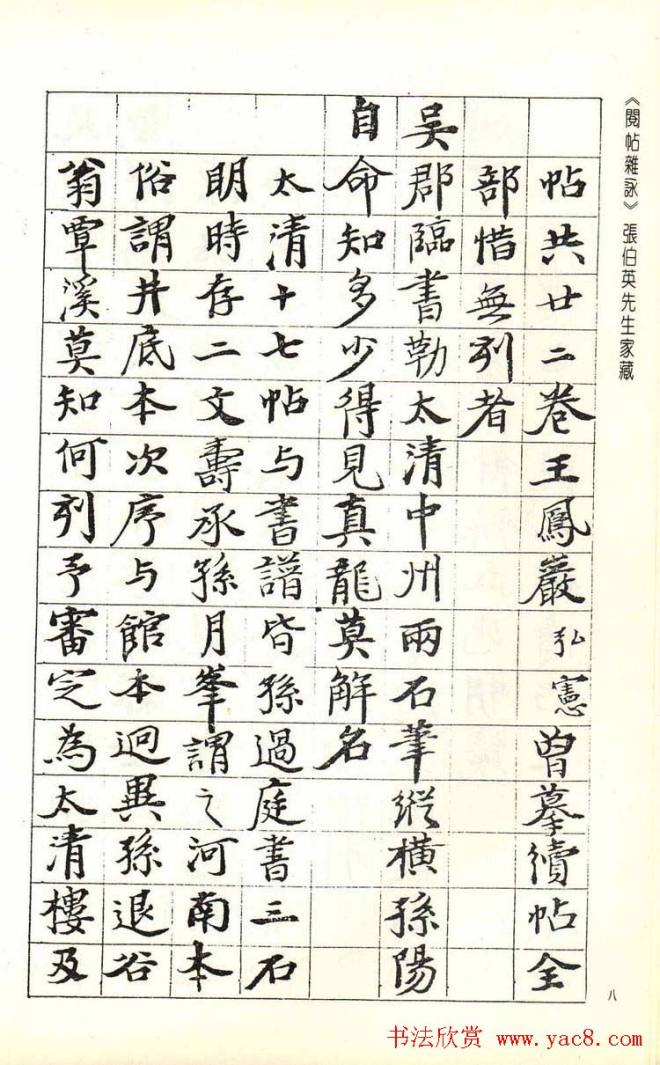 《閱帖雜詠》張伯英先生家藏
帖共廿二卷王鳳嚴弘憲曾摹續帖全
部惜無刻者
吳郡臨書勒太清中州兩石筆縱橫孫陽
自命知多少得見真龍莫解名
太清十七帖与書譜皆孫過庭書三石
明時存二文壽承孫月峯謂之河南本
俗謂井底本次序与館本迥異孫退谷
翁覃溪莫知何刻予審定為太清樓及
八
书法欣赏 www.yac8.com